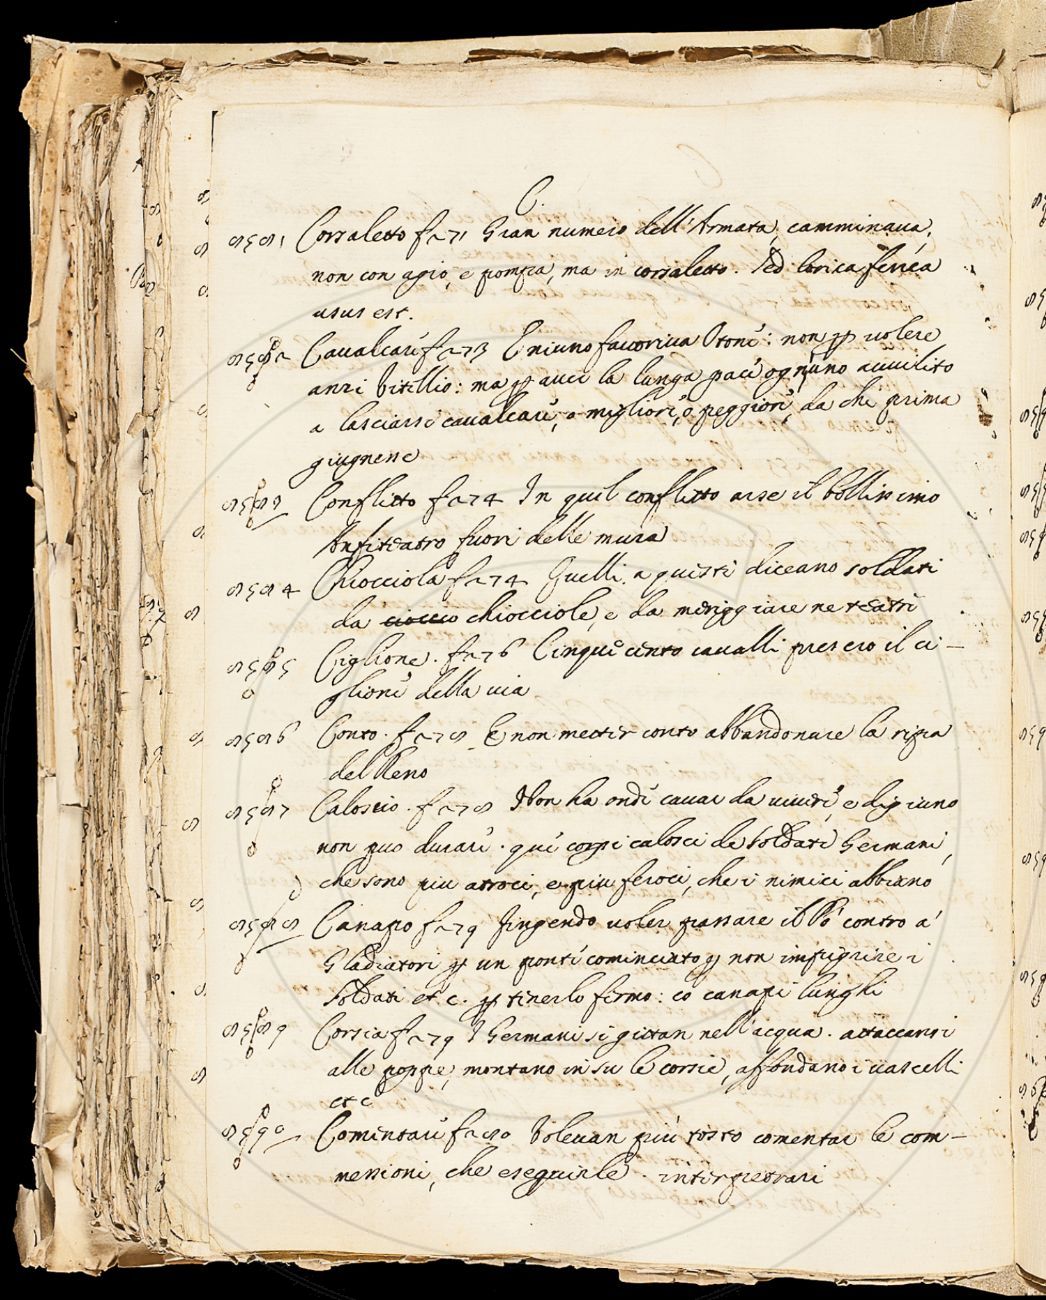 C.
8581 Corsaletto f 271 Gran numero dell'Armata, camminava,
non con agio, e pompa, ma in corsaletto. Sed lorica ferrea
usus est.
8582 Cavalcare f 273 E niuno favoriva Otone: non p volere
anzi Vitellio: ma p aver la lunga pace ognuno avvilito
a lasciarsi cavalcare, o migliori, o peggiori, da chi prima
giugnene
8583 Conflitto f 274 In quel conflitto arse il bellissimo
Anfiteatro fuori delle mura
8584 Chiocciola f 274 Quelli, a questi diceano soldati
da chiocciole, e da meriggiare ne teatri
8585 Ciglione. f 276 Cinque cento cavalli presero il ci-
glione della via
8586 Conto. f 278 E non metter conto abbandonare la ripa
del Reno
8587 Caloscio. f 278 Non ha onde cavar da vivere, e digiuno
non puo durare. que corpi calosci de Soldati Germani,
che sono piu atroci, e piu feroci, che i nimici abbiano
8588 Canapo f 279 Fingendo voler passare il Po contro a
Gladiatori p un ponte cominciato p non impigrire i
Soldati et c. p tenerlo fermo: co canapi lunghi
8589 Corsia f 279 I Germani si gittan nell'acqua. attaccansi
alle poppe, montano in su le corsie, affondano i vascelli
et c
8590 Comentare f 280 Volevan più tosto comentar le com-
messioni, che eseguirle. interpretrari